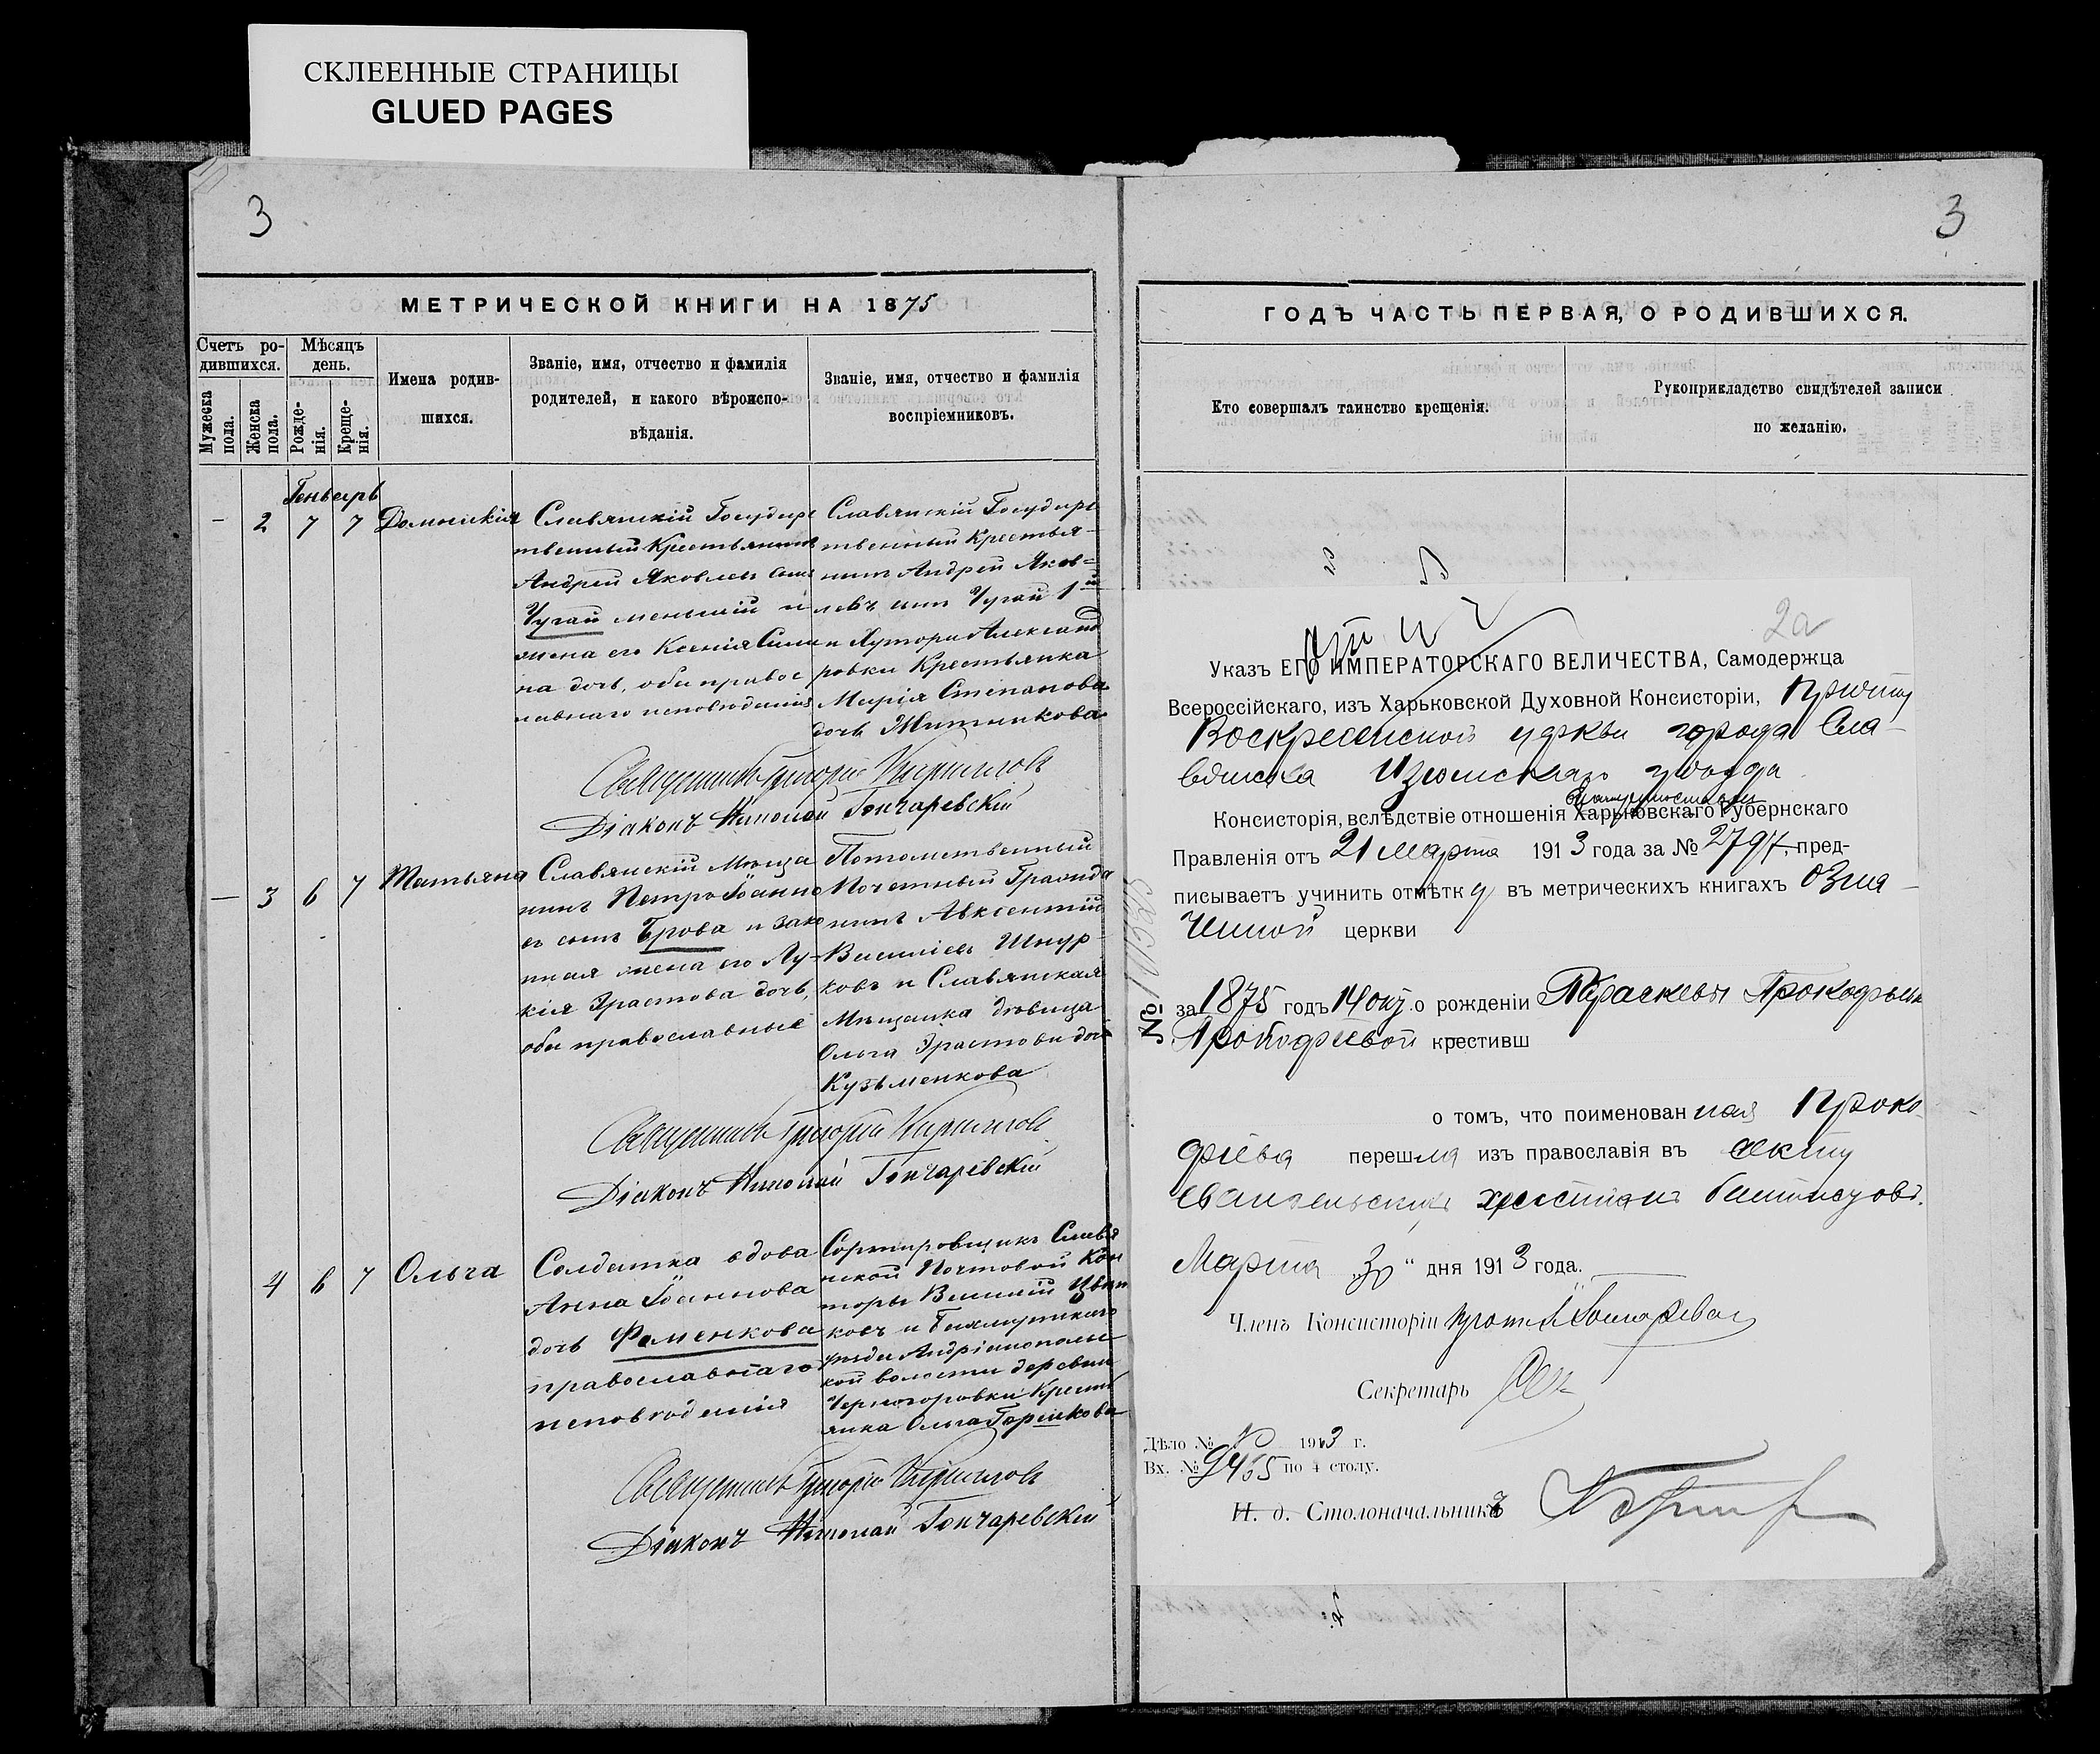 СКЛЕЕННЫЕ СТРАНИЦЫ
GLUED PAGES
3
МЕТРИЧЕСКОЙ КНИГИ НА 1875
Счетъ ро-
дившихся.
Мужеска
пола.
Женска
пола.
Мѣсяцъ
день.
Рожде-
нія.
Креще-
нія.
Имена родив-
шихся.
Званіе, имя, отчество и фамилія
родителей, и какого вѣроиспо-
вѣданія.
Званіе, имя, отчество и фамилія
воспріемниковъ.
Генварь
2 7 7 Домникія
Славянскій Государс
твенный Крестьянинъ
Андрей Яковлевъ сынъ
Чугай меньшій и
жена его Ксенія
на дочь, оби правос
лавнаго исповѣданія
Славянскій Государс
твенный Крестья-
нинъ Андрей Яков=
левъ сынъ Чугай 1й
и Хутора Александ
ровки Крестьянка
Марія Степанова
дочь Житникова
Священникъ Григорій Кирилловъ
Діаконъ Николай Гончаревскій
— 3 6 7 Татьяна
Славянскій Мѣща
нинъ Петръ Іоанно
въ сынъ Брова и зако
нная жена его Лу-
кія Эрастова дочь,
оби православные
Потомственный
Почетный Гражда
нинъ Авксентій
Василіевъ Шнур-
ковъ и Славянская
Мѣщанка дѣвица
Ольга Эрастова доч
Кузьменкова
Священникъ Григорій Кирилловъ
Діаконъ Николай Гончаревскій
4 6 7 Ольга
Солдатка вдова
Анна Іоаннова
дочь Фоменкова
православнаго
исповѣденія
Сортировщикъ Славя
нской Почтовой Кон
торы Василій
ковъ и Бахмутскаго
уѣзда Андріанополь
кой волости деревни
Черногоровки Кресть
янка Ольга Горшкова
Священникъ Григорій Кирилловъ
Діаконъ Николай Гончаревскій
3
ГОДЪ ЧАСТЬ ПЕРВАЯ, О РОДИВШИХСЯ.
Кто совершалъ таинство крещенія.
Рукоприкладство свидѣтелей записи
по желанію.
2а
Указъ ЕГО ИМПЕРАТОРСКАГО ВЕЛИЧЕСТВА, Самодержца
Всероссійскаго, изъ Харьковской Духовной Консисторіи, Причту
Воскресенской церкви города Сла-
вянска Изюмскаго уѣзда
Консисторія, вслѣдствіе отношенія Харьковскаго Губернскаго
Правленія отъ 21 Марта 1913 года за № 2797, пред-
писываетъ учинить отмѣтку въ метрическихъ книгахъ озна-
ченной церкви
за 1875 годъ 14 окт. о рожденіи Параскевы Прокофьевн
Прокофьевой крестивш
о томъ, что поименованная Проко
фьева перешла изъ православія въ секту
евангельскихъ христіанъ баптистовъ.
Марта „30“ дня 1913 года.
Членъ Консисторіи
Секретарь
Дѣло № 1913 г.
Вх. № 9455 по 4 столу.
И. д. Столоначальникъ